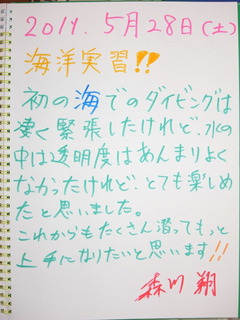 2011. 5月28日(土)
海洋実習!!
初の海でのダイビングは
凄く緊張したけれど、水の
中は透明度はあんまりよく
なかったけれど、とても楽しめ
たと思いました。
これからもたくさん潜ってもっと
上手になりたいと思います!!
森川 翔